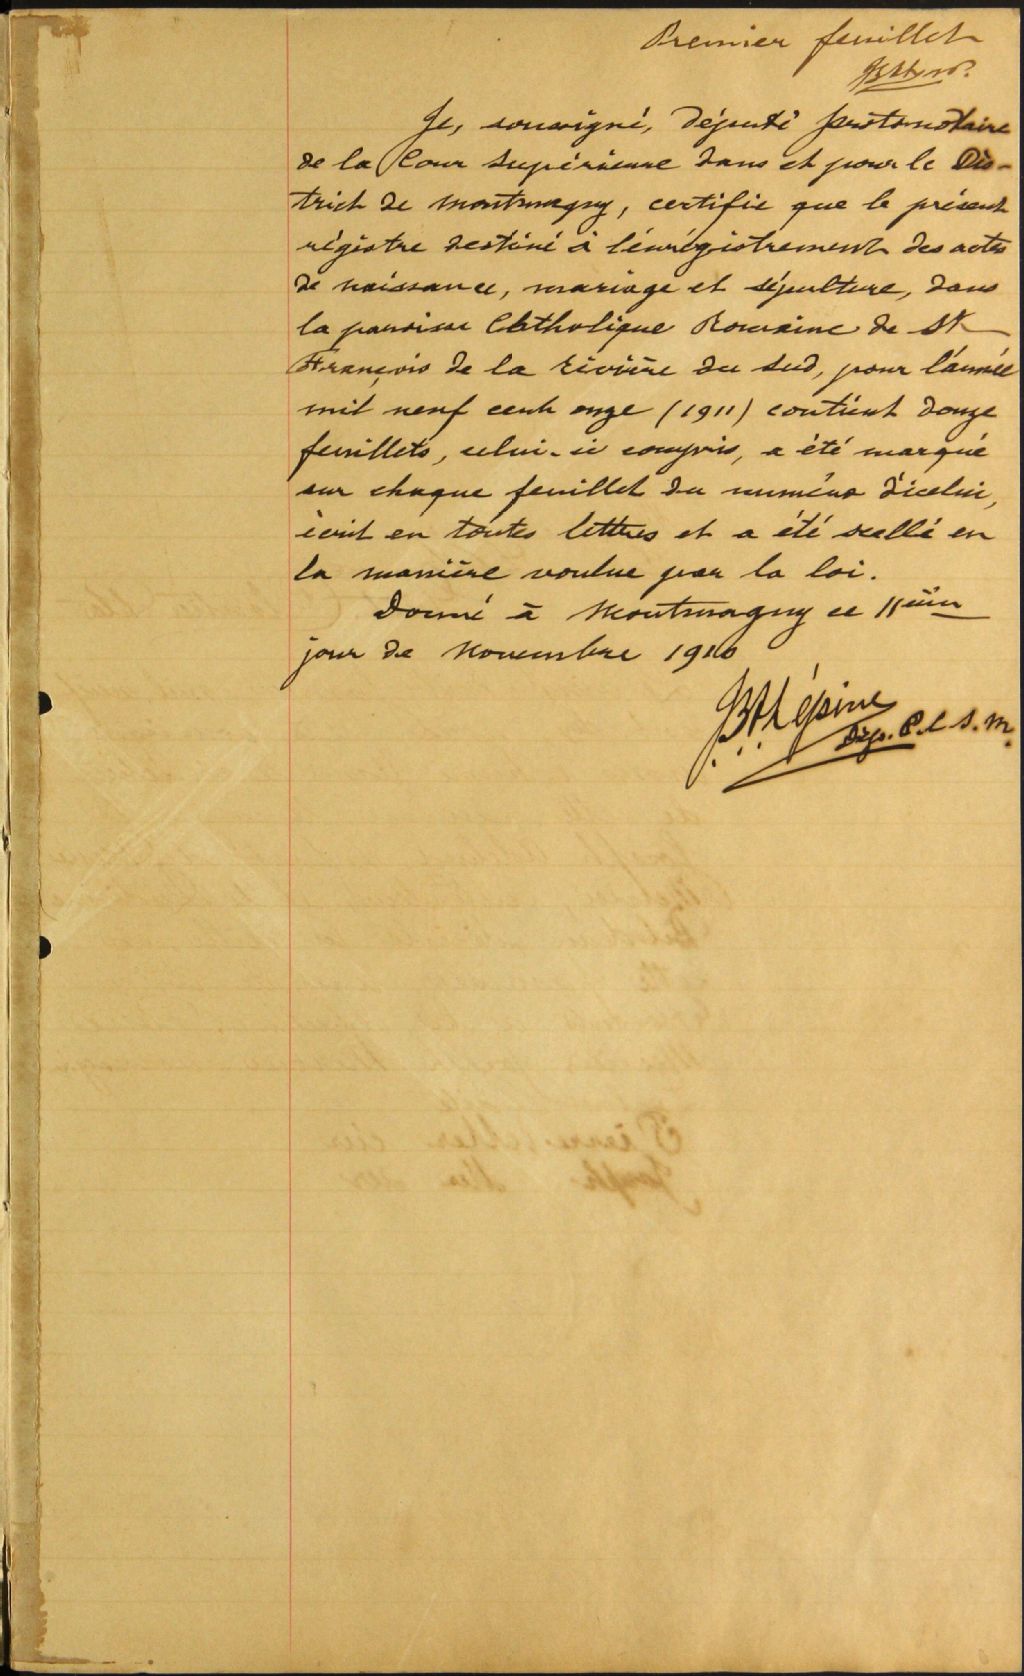 Premier feuillet
Je, soussigné, député protonotaire
de la Cour Supérieure dans et pour le Dis-
trict de Montmagny, certifie que le présent
régistre destiné à l'enrégistrement des actes
de naissance, mariage et sépulture, dans
la paroisse Catholique Romaine de St
François de la rivière du Sud, pour l'année
mil neuf cent onze (1911) contient douze
feuillets, celui-ci compris, a été marqué
sur chaque feuillet du numéro d'icelui,
écrit en toutes lettres et a été scellé en
la manière voulue par la loi.
Donné à Montmagny ce 11ième
jour de Novembre 1910
Lépine
Dép. P. C. S. M.